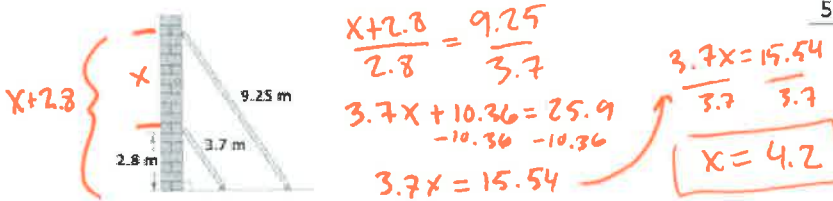 5
x+2.8
x
9.25 m
3.7 m
2.8 m
x+2.8/2.8 = 9.25/3.7
3.7x + 10.36 = 25.9
-10.36 -10.36
3.7x = 15.54
3.7x = 15.54
3.7 3.7
x = 4.2